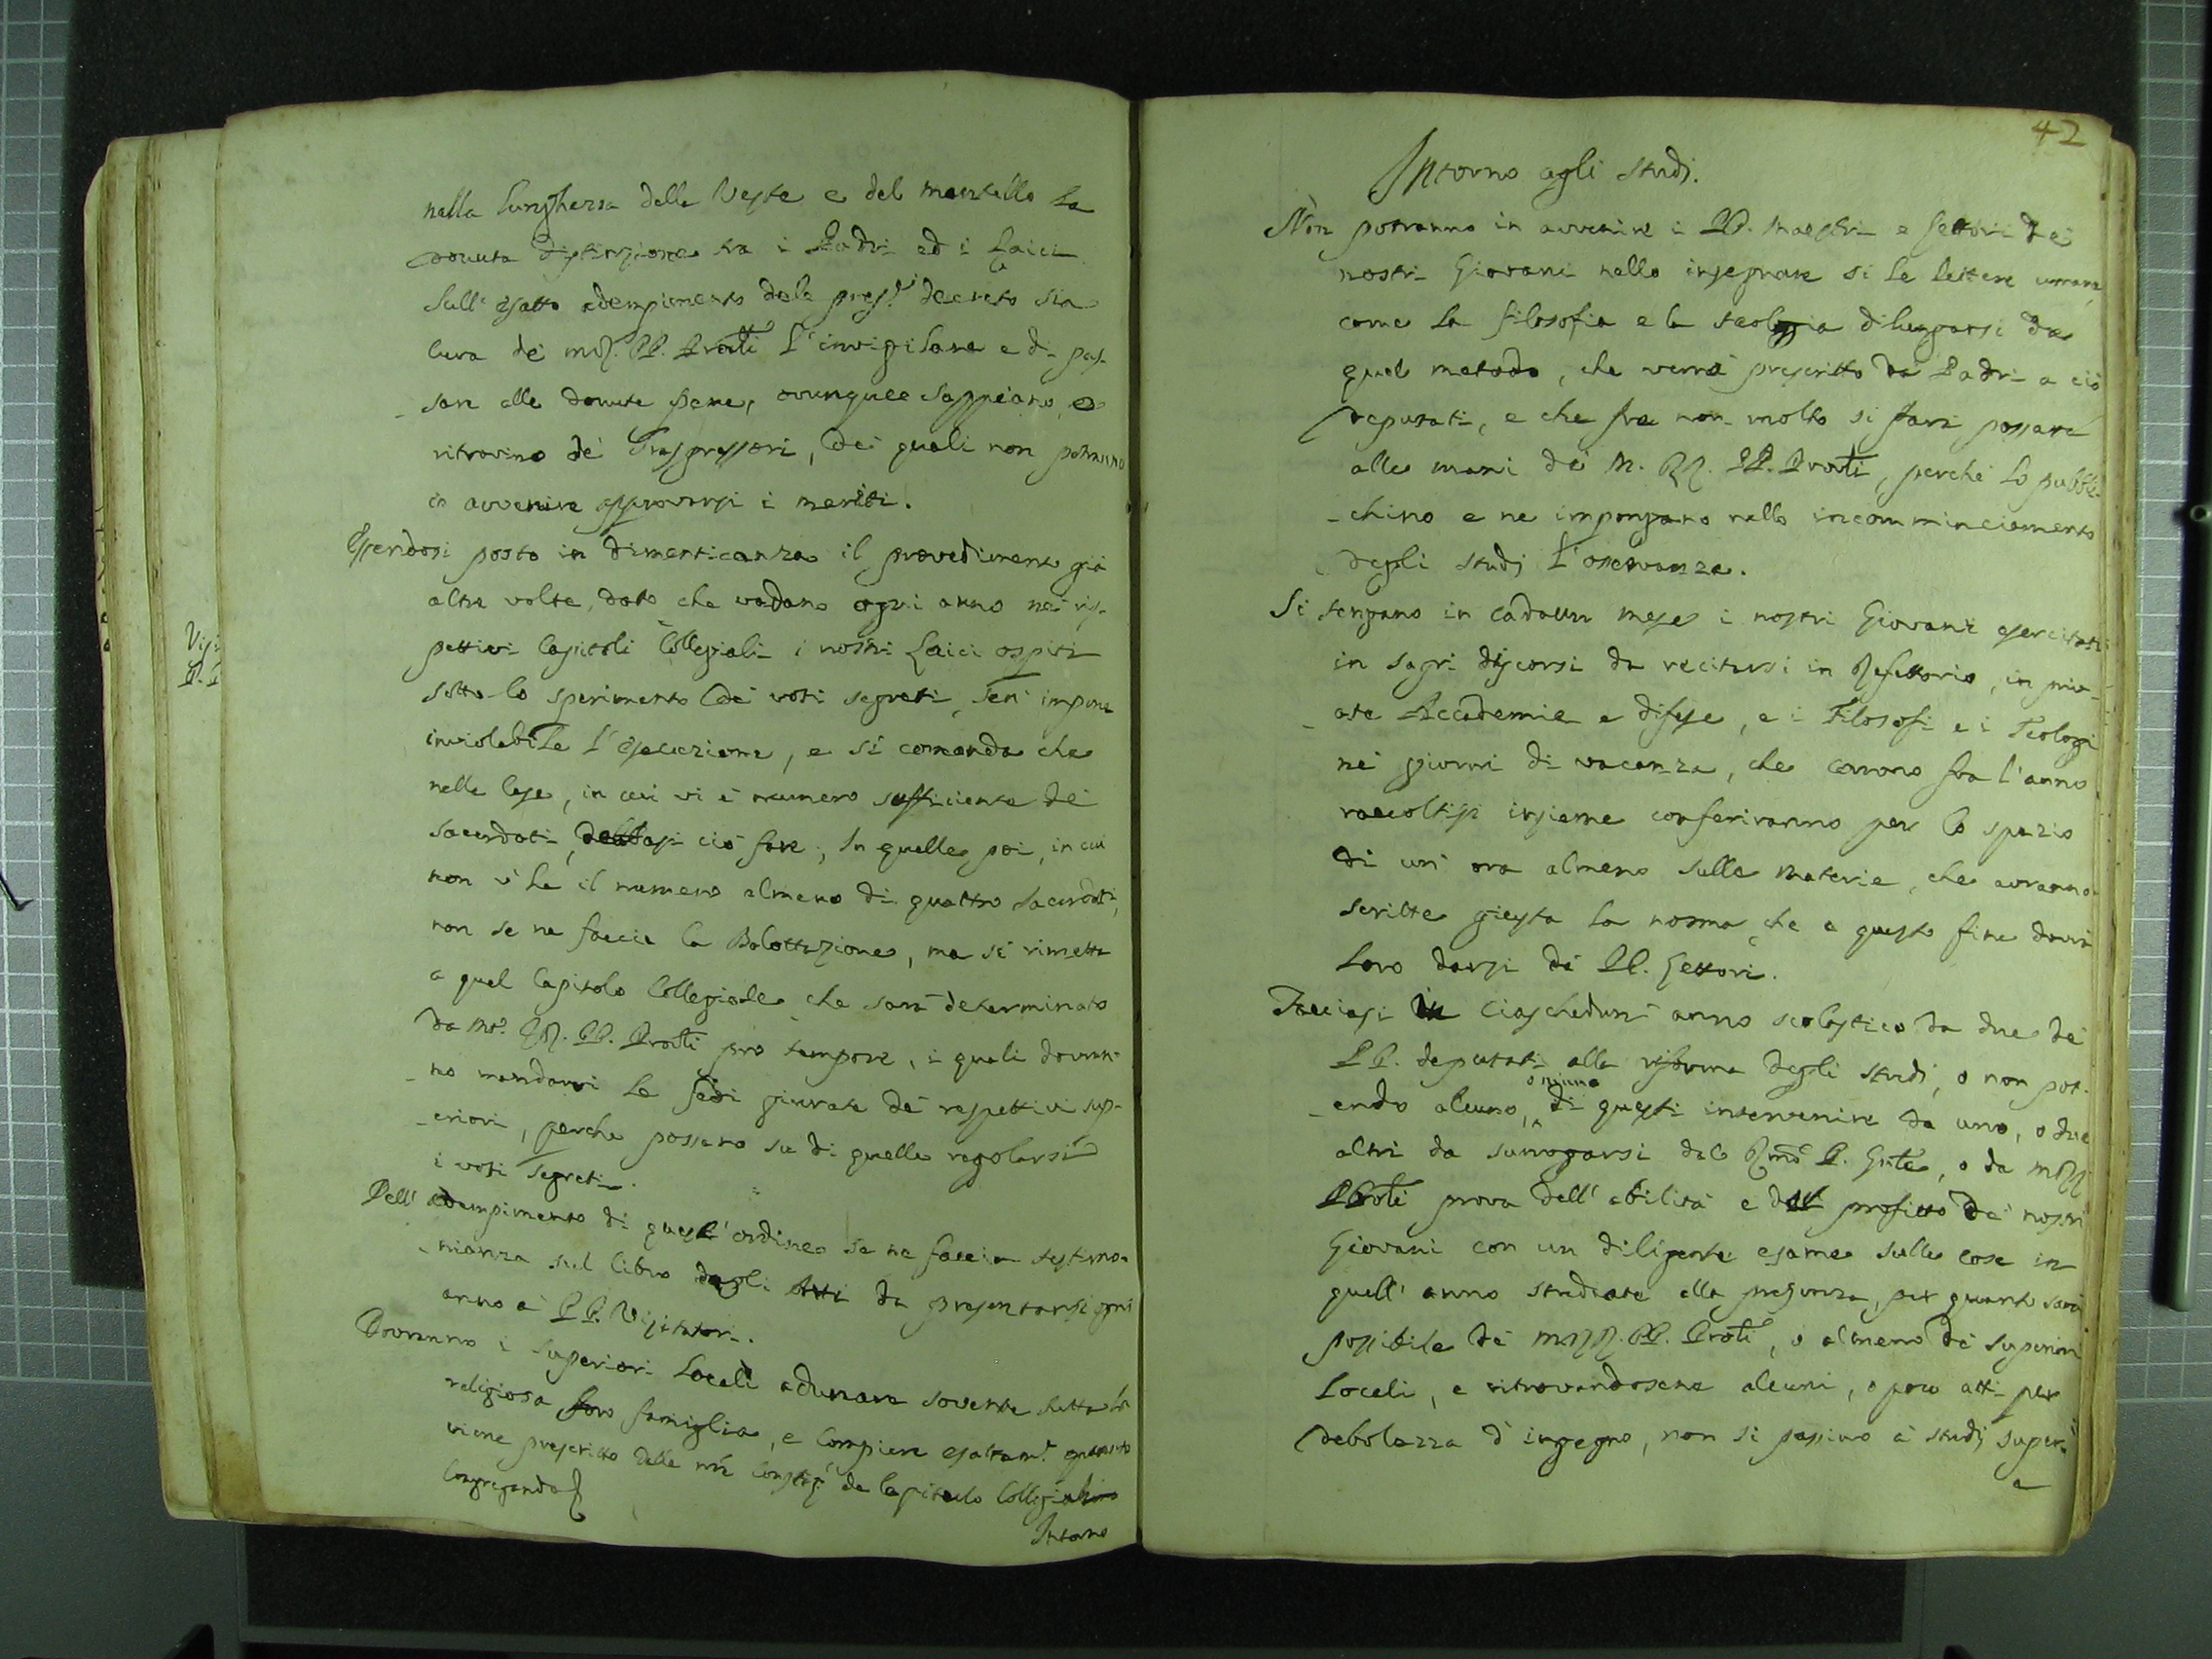 nella lunghezza della Veste e del mantello la
dovuta distinzione tra i Padri ed i Laici
Sull'esatto adempimento del pres.e decreto sia
cura dè m.RR. PP. Prov̄ti l'invigilare e di pas-
-sare alle dovute pene, ovunque sappiano, o
ritrovino dè Trasgressori, dei quali non potranno
in avvenire approvarsi i meriti.
Essendosi posto in dimenticanza il provedimento già
altre volte dato che vadano ogni anno nei ris-
pettivi Capitoli Collegiali i nostri Laici ospiti
sotto lo sperimento dei voti segreti, sen' impone
inviolabile l'esecuzione, e si comanda che
nelle Case, in cui vi è numero sufficiente dè
sacerdoti, debbasi ciò fare, In quelle poi, in cui
non v'ha il numero almeno di quattro sacerdoti,
non se ne faccia la Balottazione, ma si rimetta
a quel Capitolo Collegiale che sarà determinato
da m. RR. PP. Prov̄ti pro tempore, i quali dovran-
-no mandarvi le fedi giurate dè respettivi sup-
-eriori, perche possano su di quelle regolarsi
i voti segreti.
Dell' adempimento di quest'ordine se ne faccia testimo-
-nianza sul libro degli Atti da presentarsi ogni
anno à PP. Visitatori.
Dovranno i Superiori Locali adunare sovente tutta la
religiosa loro famiglia, e compiere esattam.e quanto
viene prescritto dalle nr̄e Constit.i de Capitulo Collegiali
Congregando
Intorno
Vis
P. P
42
Intorno agli studj.
Non potranno in avvenire i PP. Maestri e Lettori dei
nostri Giovani nello insegnare si le lettere umane
come la filosofia e la teologia dilungarsi da
quel metodo, che verrà prescritto da Padri a ciò
deputati, e che fra non molto si farà passare
alle mani dè M. RR. PP. Prov̄ti, perchè lo pubbli-
-chino e ne impongano nello incomminciamento
degli studj l'osservanza.
Si tengano in cadaun mese i nostri Giovani esercitati
in sagri discorsi da recitarsi in Refettorio, in priv-
-ate Accademie e difese, e i Filosofi e i Teologi
nei giorni di vacanza, che corrono fra l'anno
raccoltisi insieme conferiranno per lo spazio
di un' ora almeno sulle materie, che avranno
scritte giusta la norma che a questo fine dovrà
loro darsi dà PP. Lettori.
Facciasi in ciaschedun' anno scolastico da due dè
PP. deputati alla riforma degli studj, o non pot-
-endo alcuno, o niuno di questi intervenire da uno, o due
altri da surrogarsi dal Rm̄o P. Gn̄le, o da mRR
PProv̄ti prova dell' abilità e del profitto de' nostri
Giovani con un diligente esame sulle cose in
quell' anno studiate alla presenza, per quanto sarà
possibile dè mRR. PP. Prov̄ti, o almeno dè superiori
Locali, e ritrovandosene alcuni, o poco atti per
debolezza d'ingegno, non si passino à studj superi
a